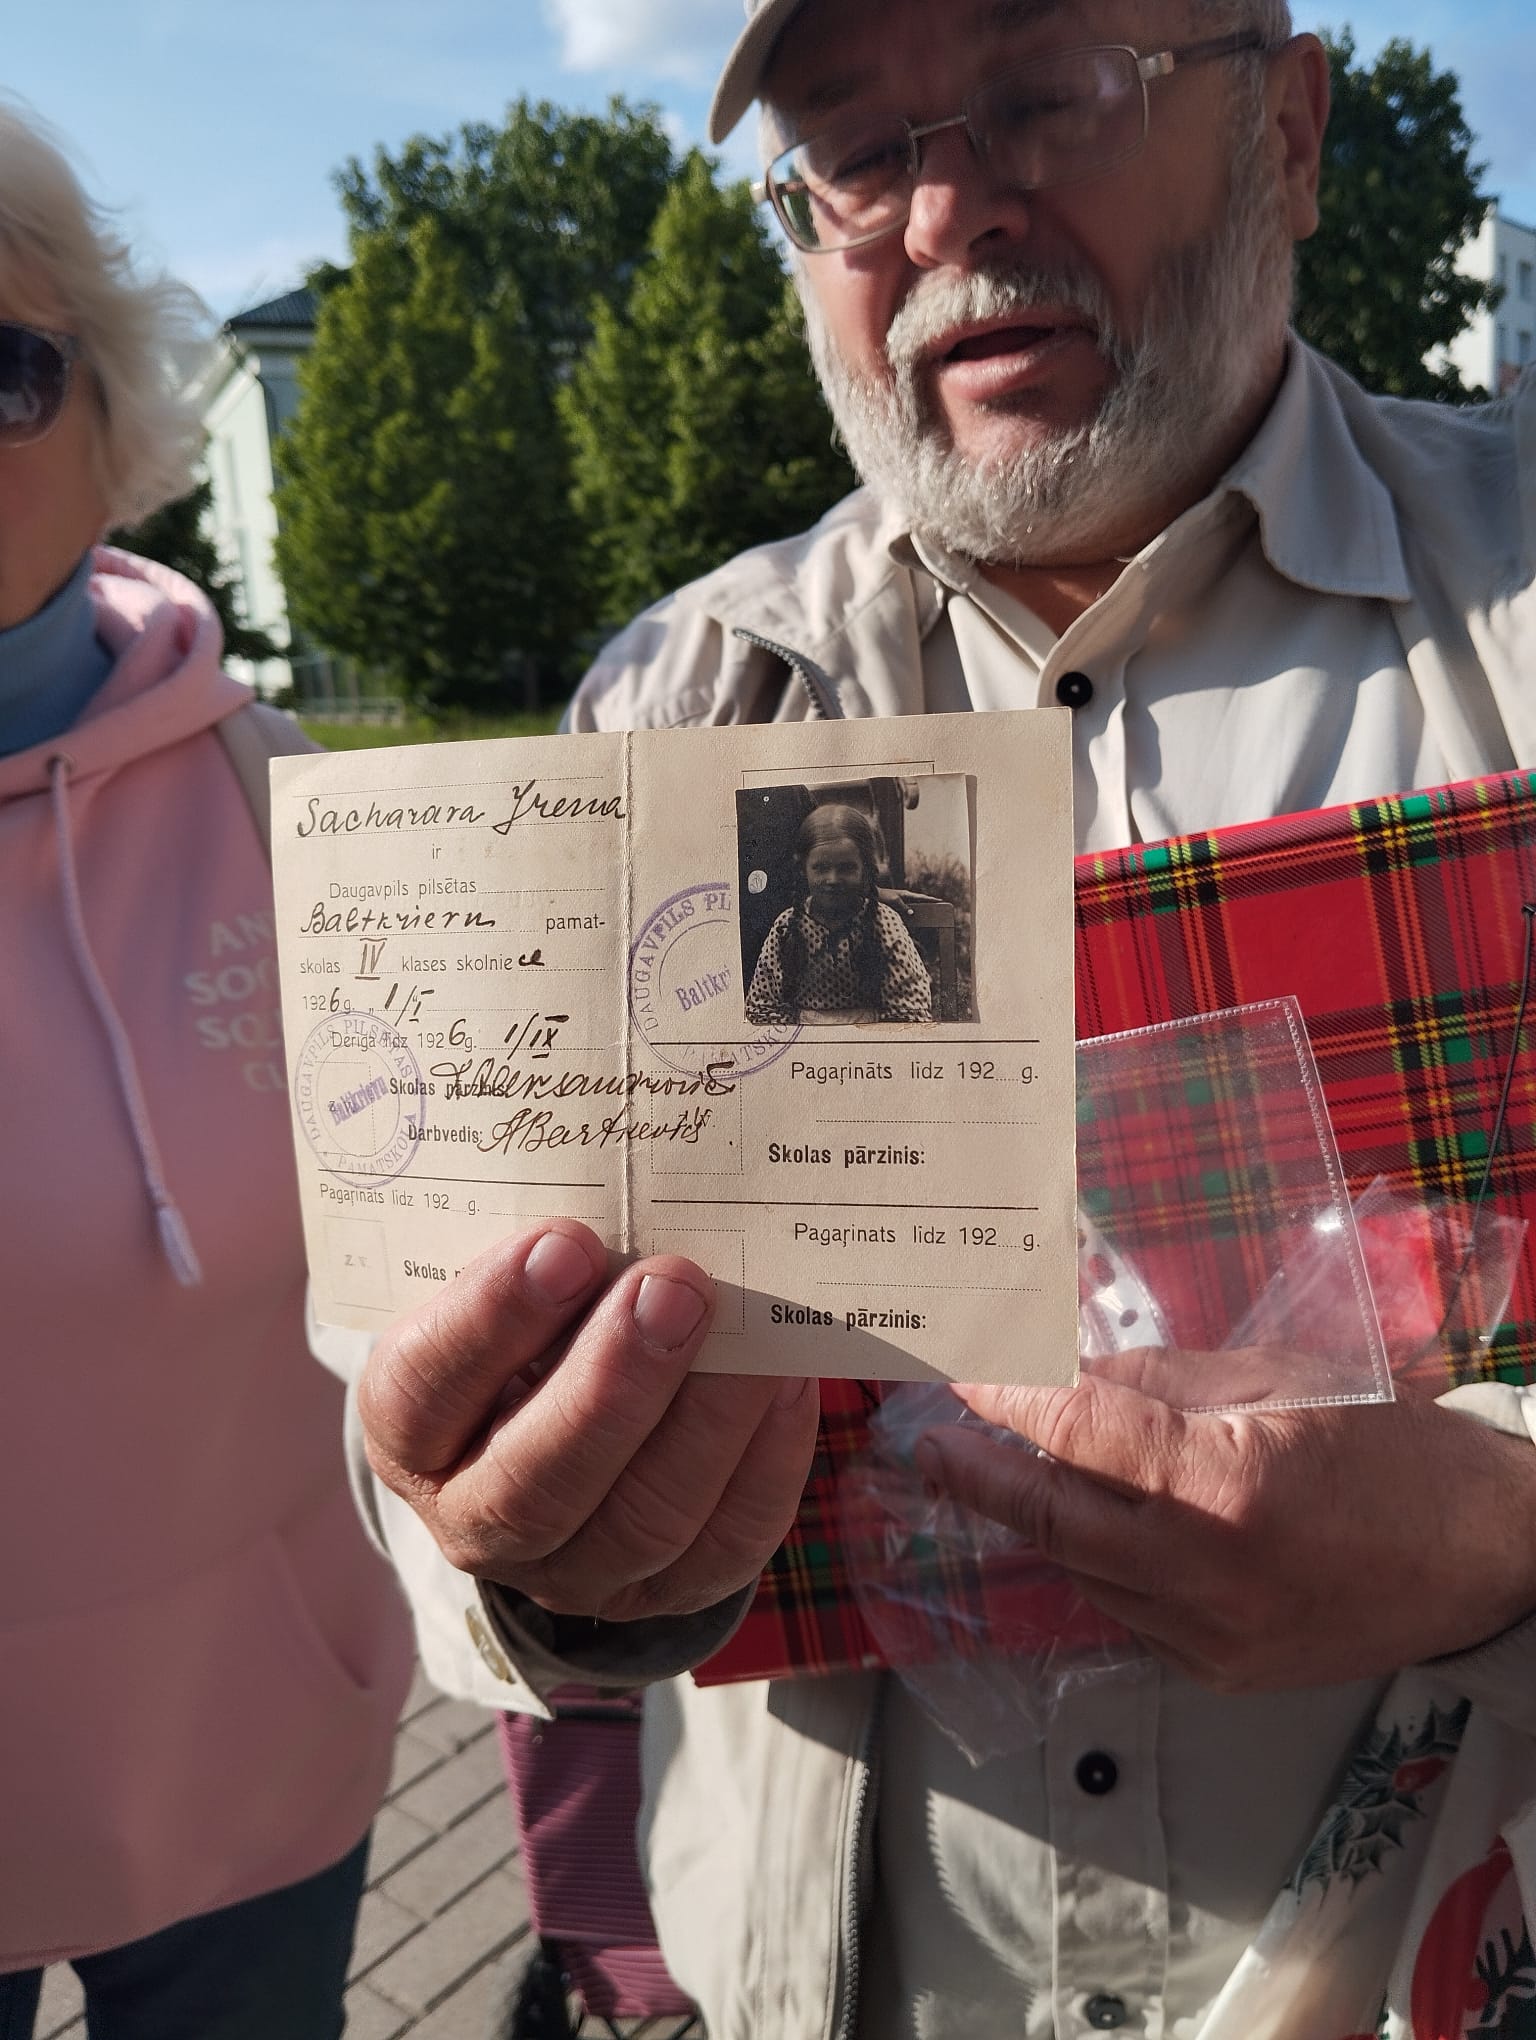 Sacharava Irena
ir
Daugavpils pilsētas
Baltkrievu pamat-
skolas IV klases skolniece
1926 g. „ 1/I
Derīga līdz 1926 g. 1/IX
Skolas pārzinis
Darbvedis:
Pagaŗināts līdz 192 g.
z. v.
Skolas
DAUGAVPILS PILSĒTAS
Baltkrievu
PAMATSKOLA
DAUGAVPILS
PAMATSKO
Pagaŗināts līdz 192 g.
Skolas pārzinis:
Pagaŗinats līdz 192 g.
Skolas pārzinis: